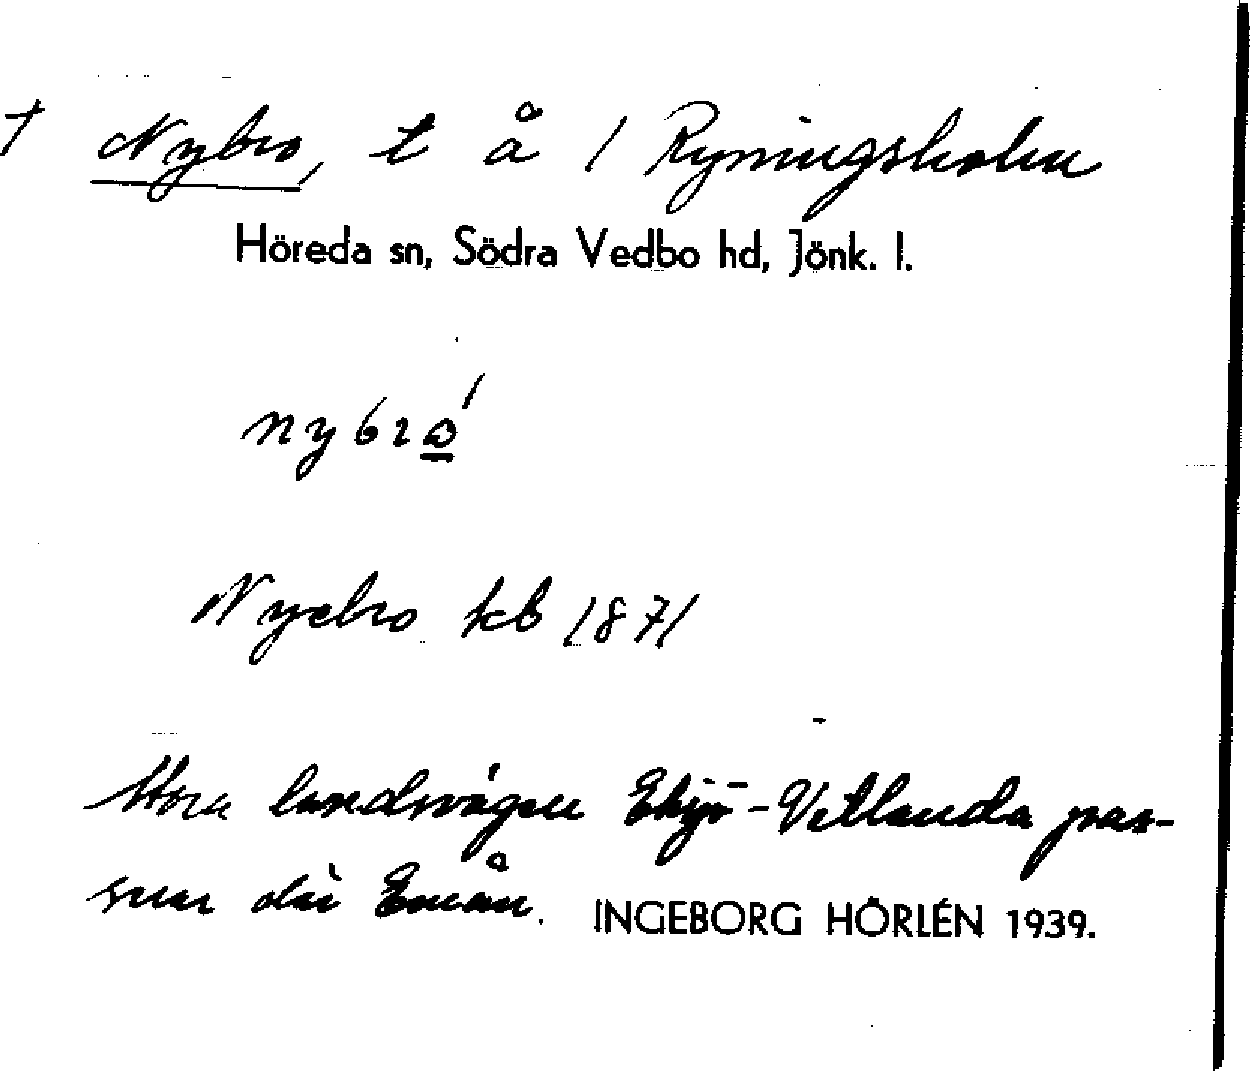 † Nybro, t å / Ryningsholm
Höreda sn, Södra Vedbo hd, Jönk. l.
nybro̲´
Nyebro kb 1871
Stora landsvägen Eksjö-Vetlanda pas-
serar där Emån. INGEBORG HÖRLÉN 1939.